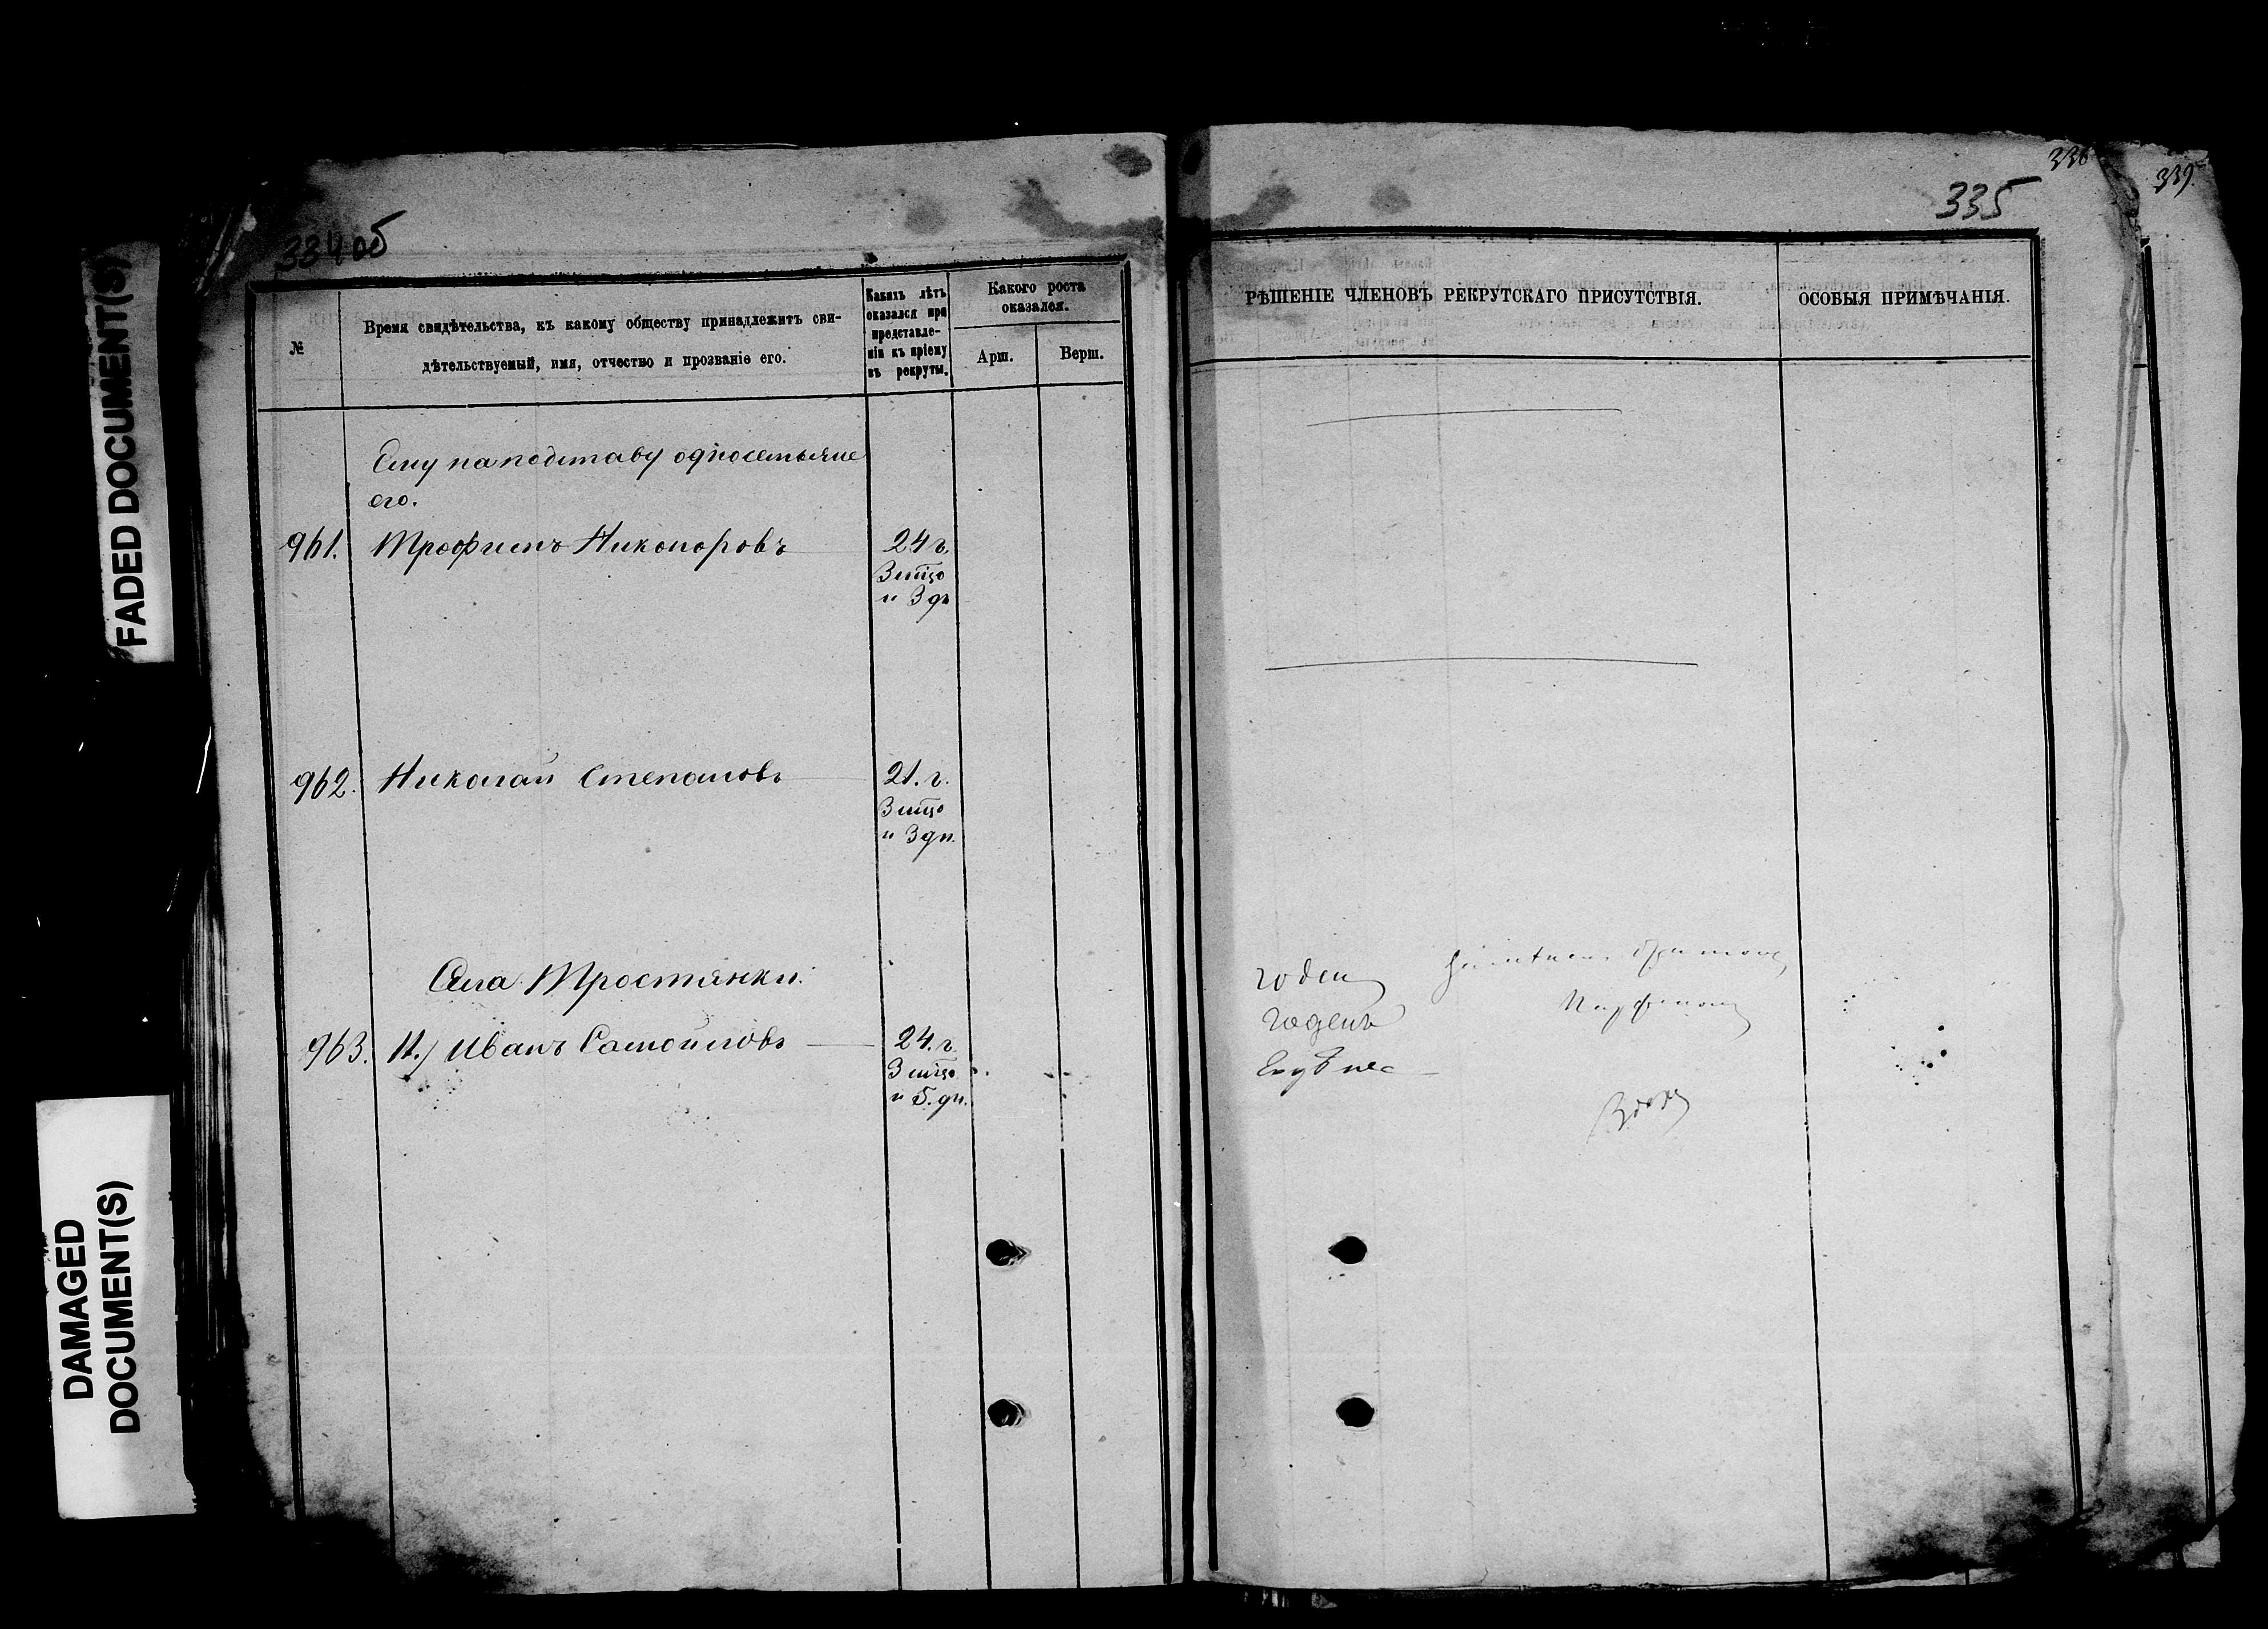 FADED DOCUMENT(S)
DAMAGED
DOCUMENT(S)
334об
№
Время свидѣтельства, къ какому обществу принадлежитъ сви-
дѣтельствуемый, имя, отчество и прозваніе его.
Какихъ лѣтъ
оказался при
представле-
ніи къ пріему
въ рекруты.
Какого роста
оказался.
Арш.
Верш.
Ему на подставу односемьяне
его.
961. Трофимъ Никоноровъ 24 г.
3 мцо
и 3 дн
962. Николай Степановъ 21. г.
3 мцо
и 3 дн.
Села Тростянки.
963. Н.) Иванъ Самойловъ 24. г.
3 мцо
и 5. дн.
336
339.
335
РѢШЕНІЕ ЧЛЕНОВЪ РЕКРУТСКАГО ПРИСУТСТВІЯ.
ОСОБЫЯ ПРИМѢЧАНІЯ.
годен
Годенъ